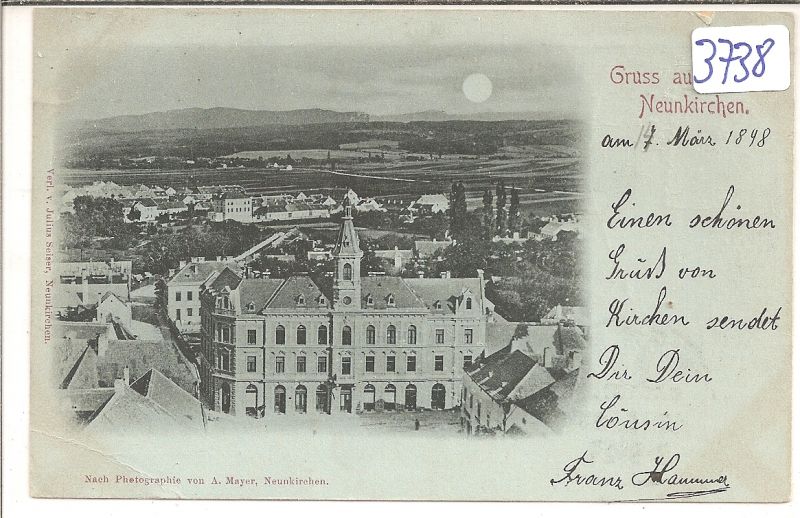 3738
Gruss au
Neunkirchen.
am 17. März 1898
Einen schönen
Gruß von
Kirchen sendet
Dir Dein
Cousin
Franz Hammer
Verl. v. Julius Seiser, Neunkirchen.
Nach Photographie von A. Mayer, Neunkirchen.